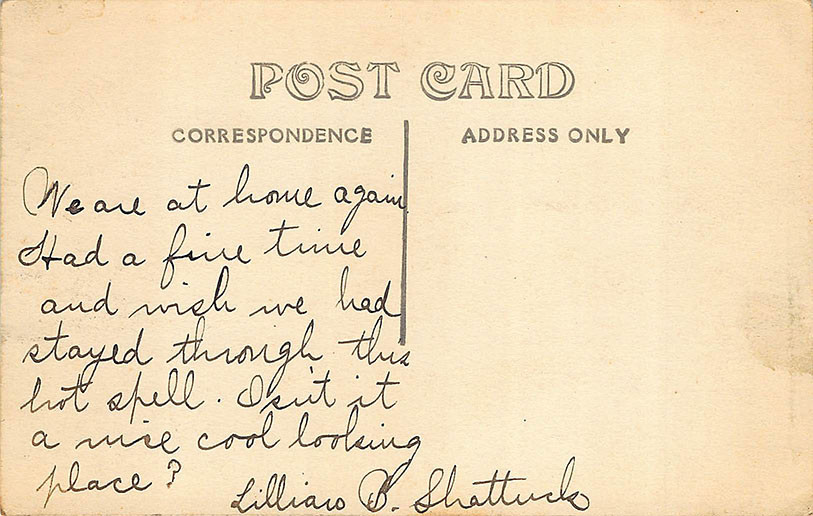 POST CARD
CORRESPONDENCE
ADDRESS ONLY
We are at home again
Had a fine time
and wish we had
stayed through this
hot spell. Isn't it
a nice cool looking
place?
Lillian B. Shattuck